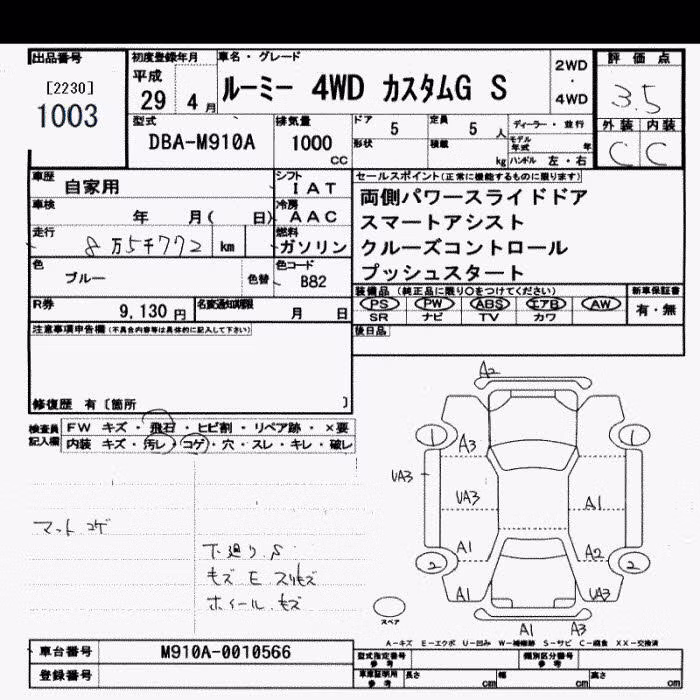 出品番号
[2230]
1003
初度登録年月
平成
29 4月
車名・グレード
ルーミー 4WD カスタムG S
2WD
・
4WD
評価点
3.5
外装 内装
C C
型式
DBA-M910A
排気量
1000
CC
ドア 5
形状
定員 5 人
積載 kg
ディーラー・並行
モデル年式 年
ハンドル 左・右
車歴 自家用
シフト
IAT
車検 年 月( 日)
冷房
AAC
走行 8万5千772 km
燃料
ガソリン
色 ブルー 色替
色コード
B82
R券 9,130円
名変通知期限 月 日
セールスポイント(正常に機能するものに限ります)
両側パワースライドドア
スマートアシスト
クルーズコントロール
プッシュスタート
装備品(純正品に限り○をつけてください)
PS PW ABS エアB AW
SR ナビ TV カワ
新車保証書
有・無
後日品
注意事項申告欄(不具合内容等は具体的に記入して下さい)
修復歴 有〔箇所 〕
検査員記入欄
FW キズ・飛石・ヒビ割・リペア跡・×要
内装 キズ・汚レ・コゲ・穴・スレ・キレ・破レ
マット コゲ
下廻り S
キズ E スリキズ
ホイール キズ
A2
1 1
A3
UA3
UA3
A1
A1
A2
2 2
A1
UA3
スペア
A1 A3
A-キズ E-エクボ U-凹み W-補修跡 S-サビ C-腐食 XX-交換済
車台番号 M910A-0010566
登録番号
型式指定番号
参考
類別区分番号
参考
車庫証明用
参考
長さ cm
幅 cm
高さ cm